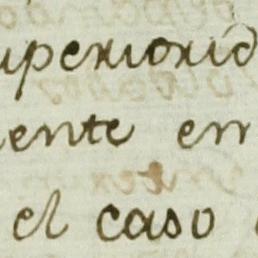 uperiorid
ente en
el caso